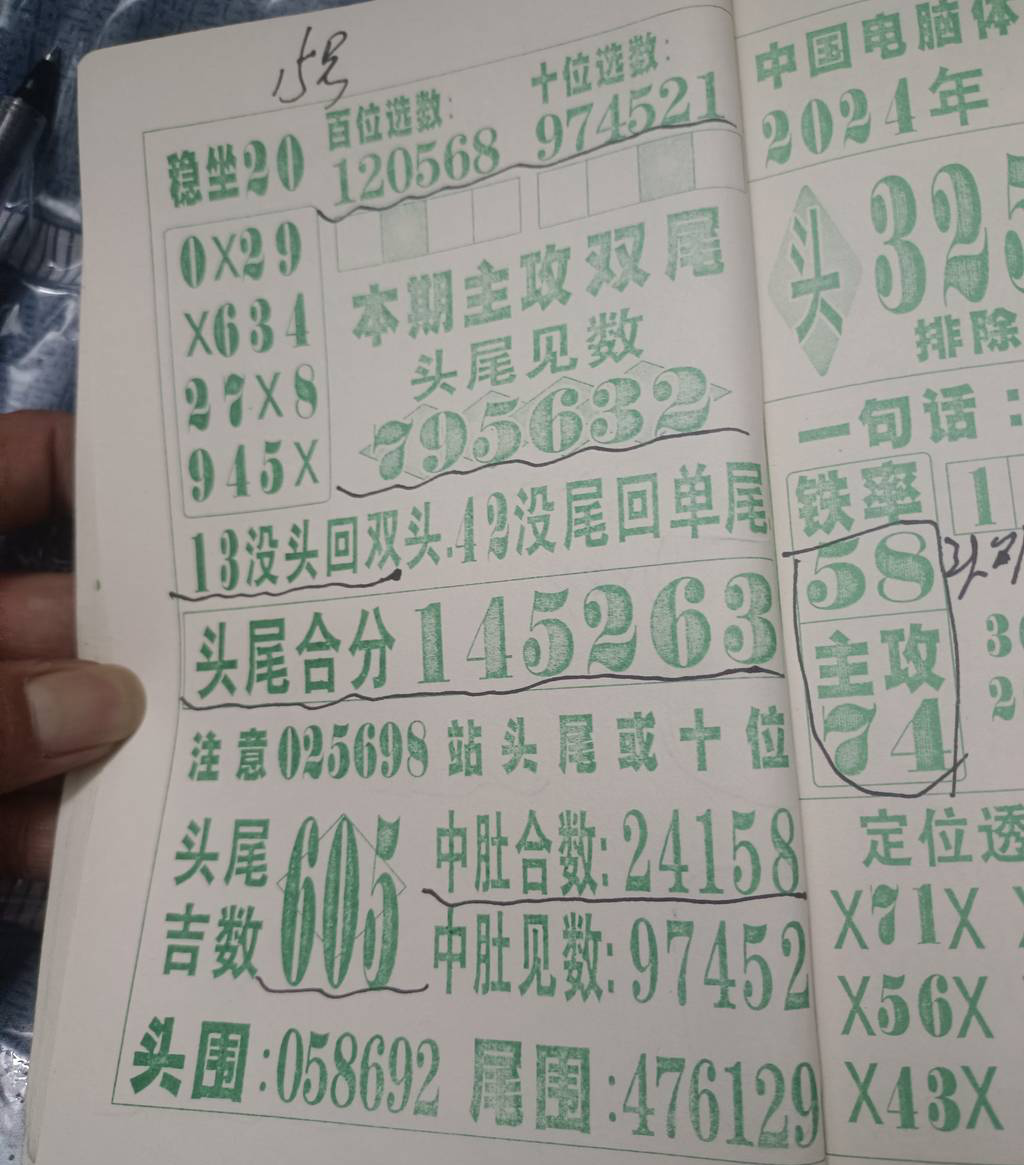 15号
稳坐20
百位选数:
120568
十位选数:
974521
0X29
X634
27X8
945X
本期主攻双尾
头尾见数
795632
13没头回双头.42没尾回单尾
头尾合分 145263
注意025698 站头尾或十位
头尾吉数 605
中肚合数:24158
中肚见数:97452
头围:058692 尾围:476129
中国电脑体
2024年
头 325
排除
一句话:
铁率 1
58
主攻
74
定位透
X71X
X56X
X43X